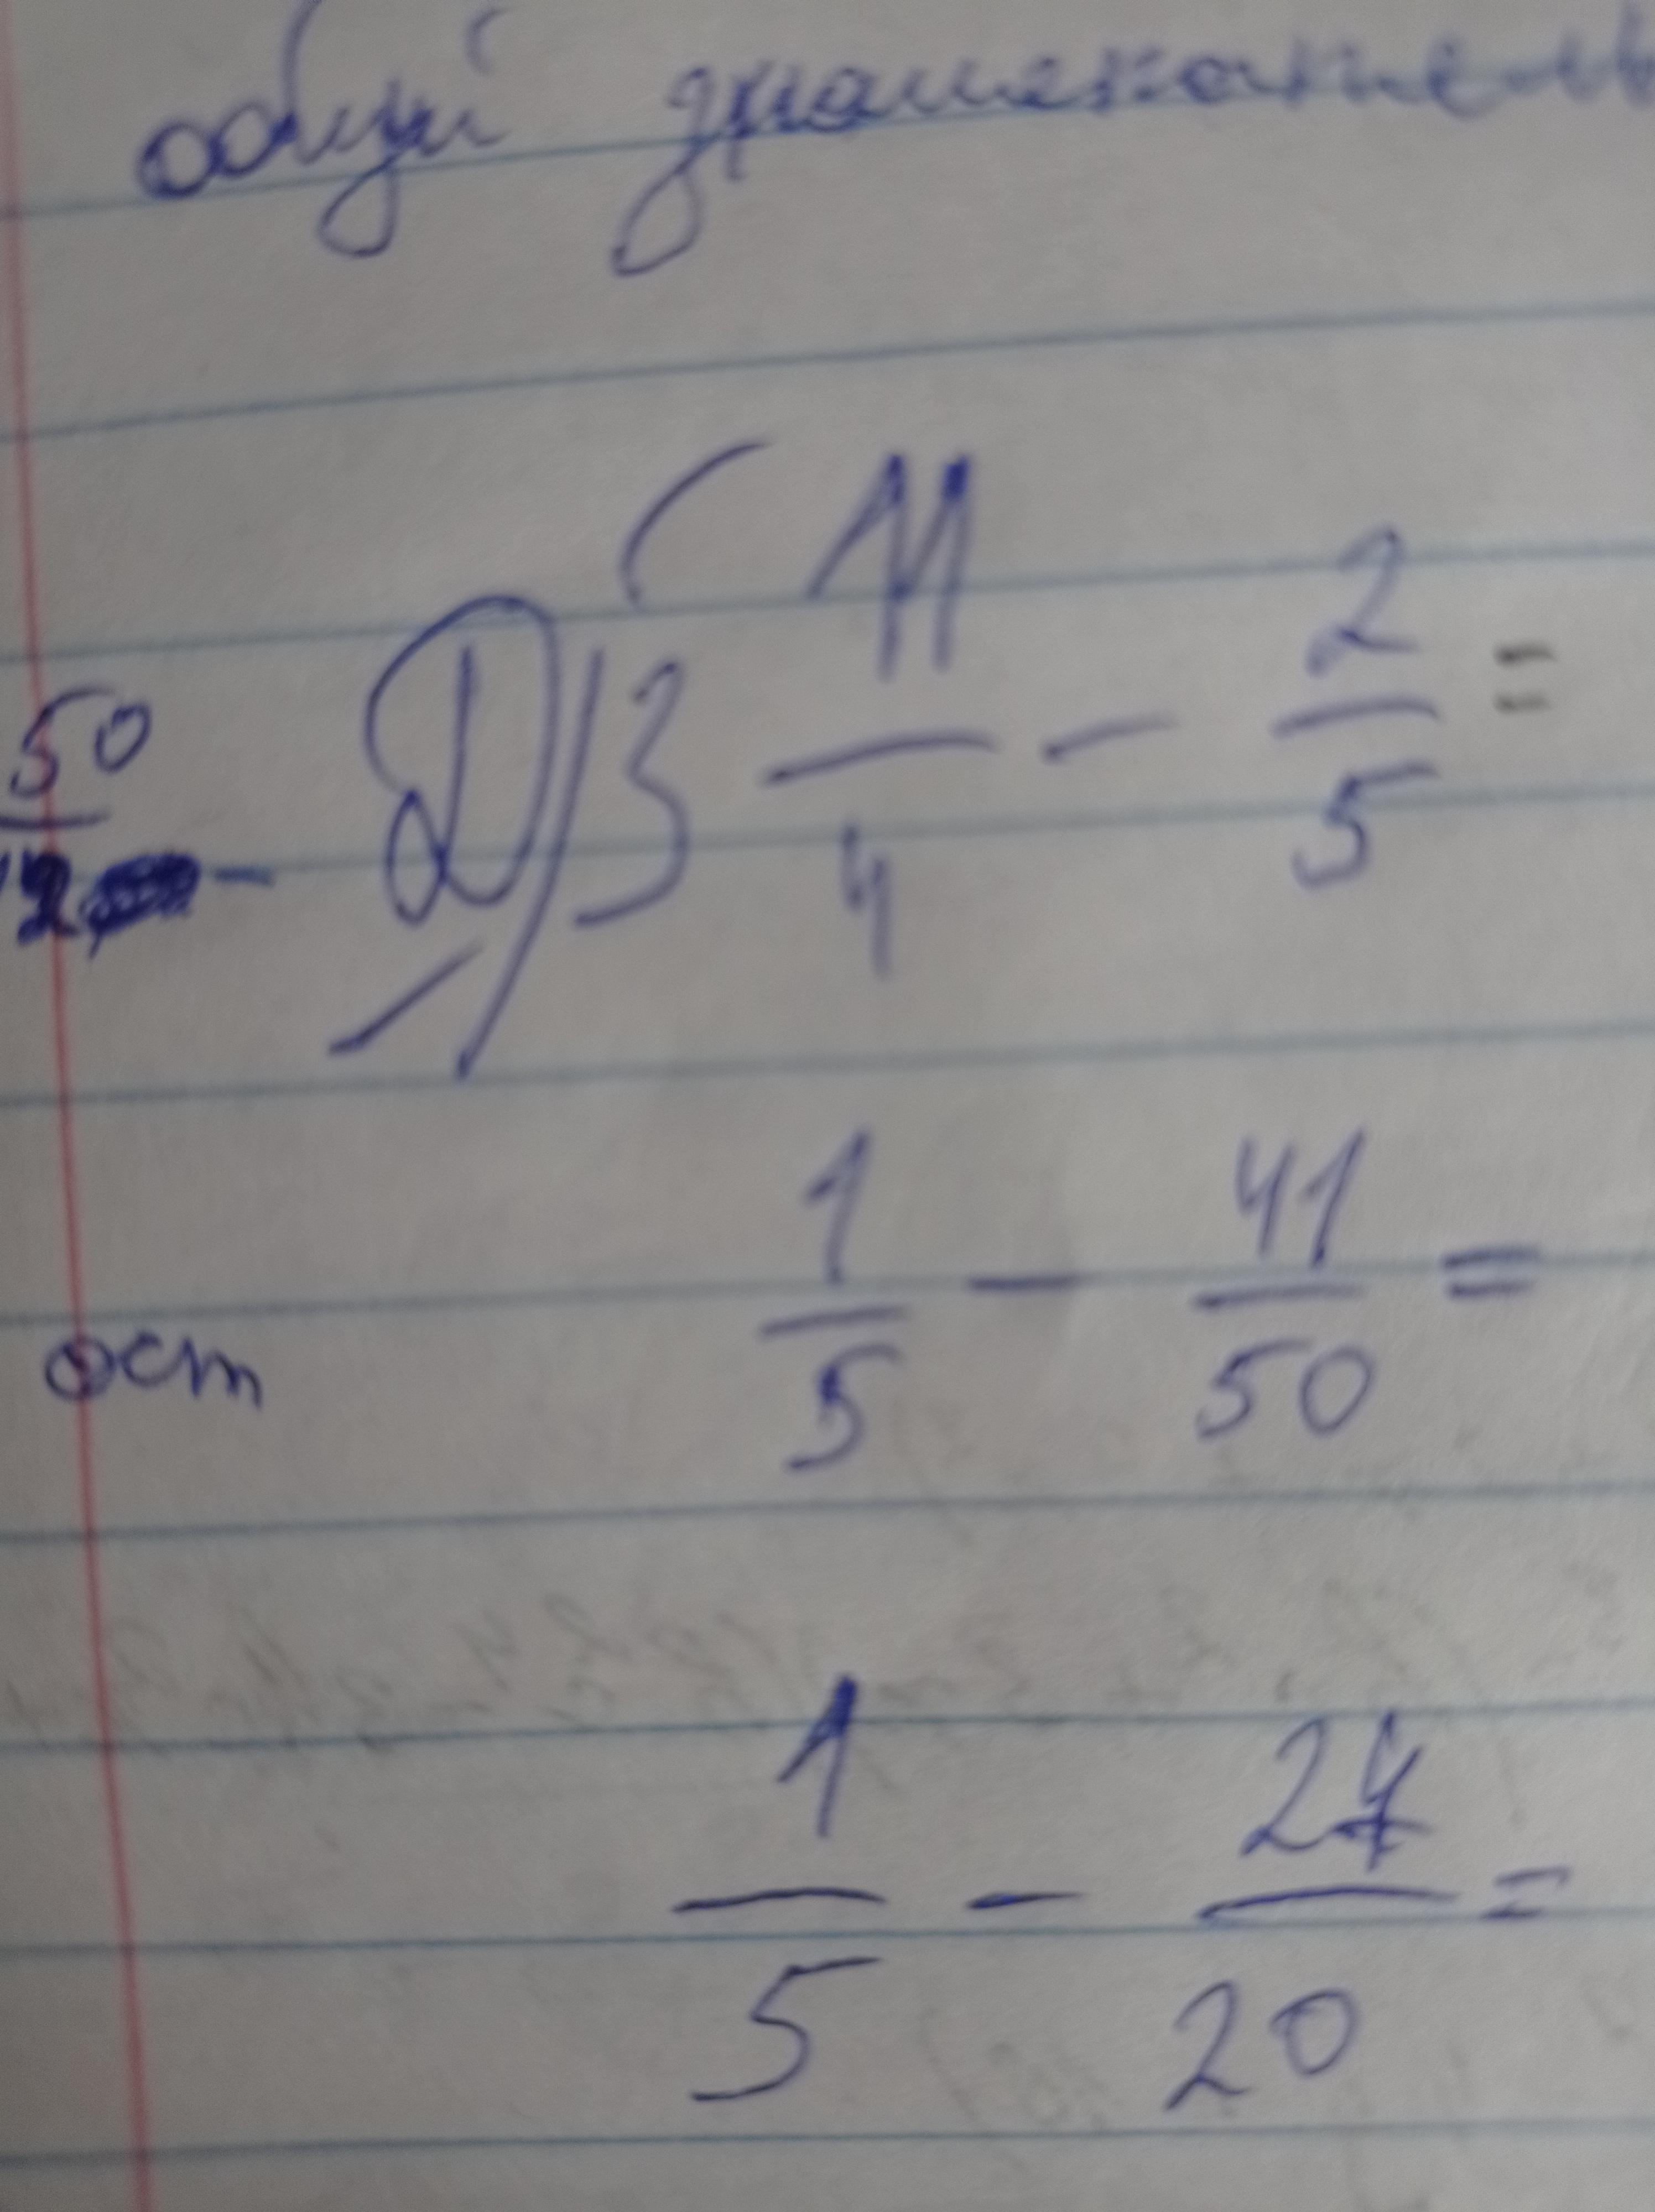 общий знаменатель
50/12 -
Д/З 11/4 - 2/5 =
1/5 - 41/50 =
ост
1/5 - 24/20 =